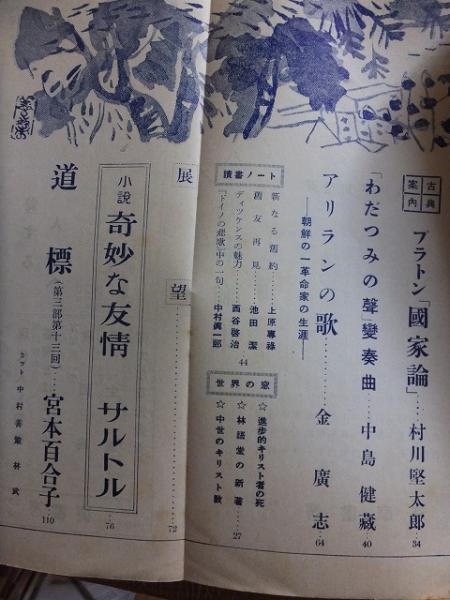 古典案内
プラトン「國家論」…村川堅太郎 34
「わだつみの聲」變奏曲……中島健藏 40
アリランの歌…………金廣志 64
――朝鮮の一革命家の生涯――
讀書ノート
新なる舊約……上原專祿
舊友再見……池田潔
ディッケンスの魅力……西谷啓治
『ドイノの悲歌』中の一句…中村眞一郎
44
世界の窓
☆進步的キリスト者の死
☆林語堂の新著……
☆中世のキリスト教
27
展望……72
小說 奇妙な友情 サルトル 76
道標(第三部第十三回)…宮本百合子 110
カット 中村善策 林武